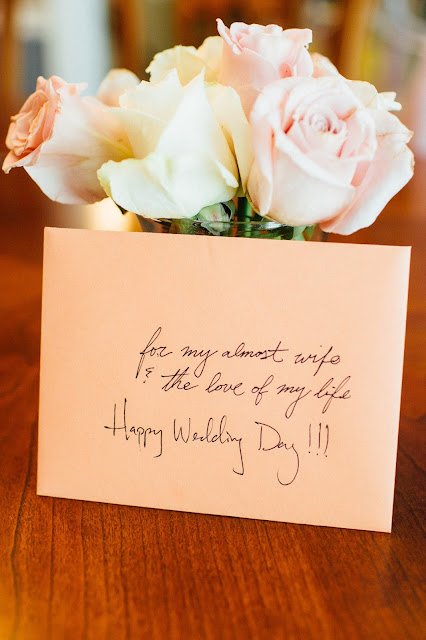 for my almost wife
& the love of my life
Happy Wedding Day!!!